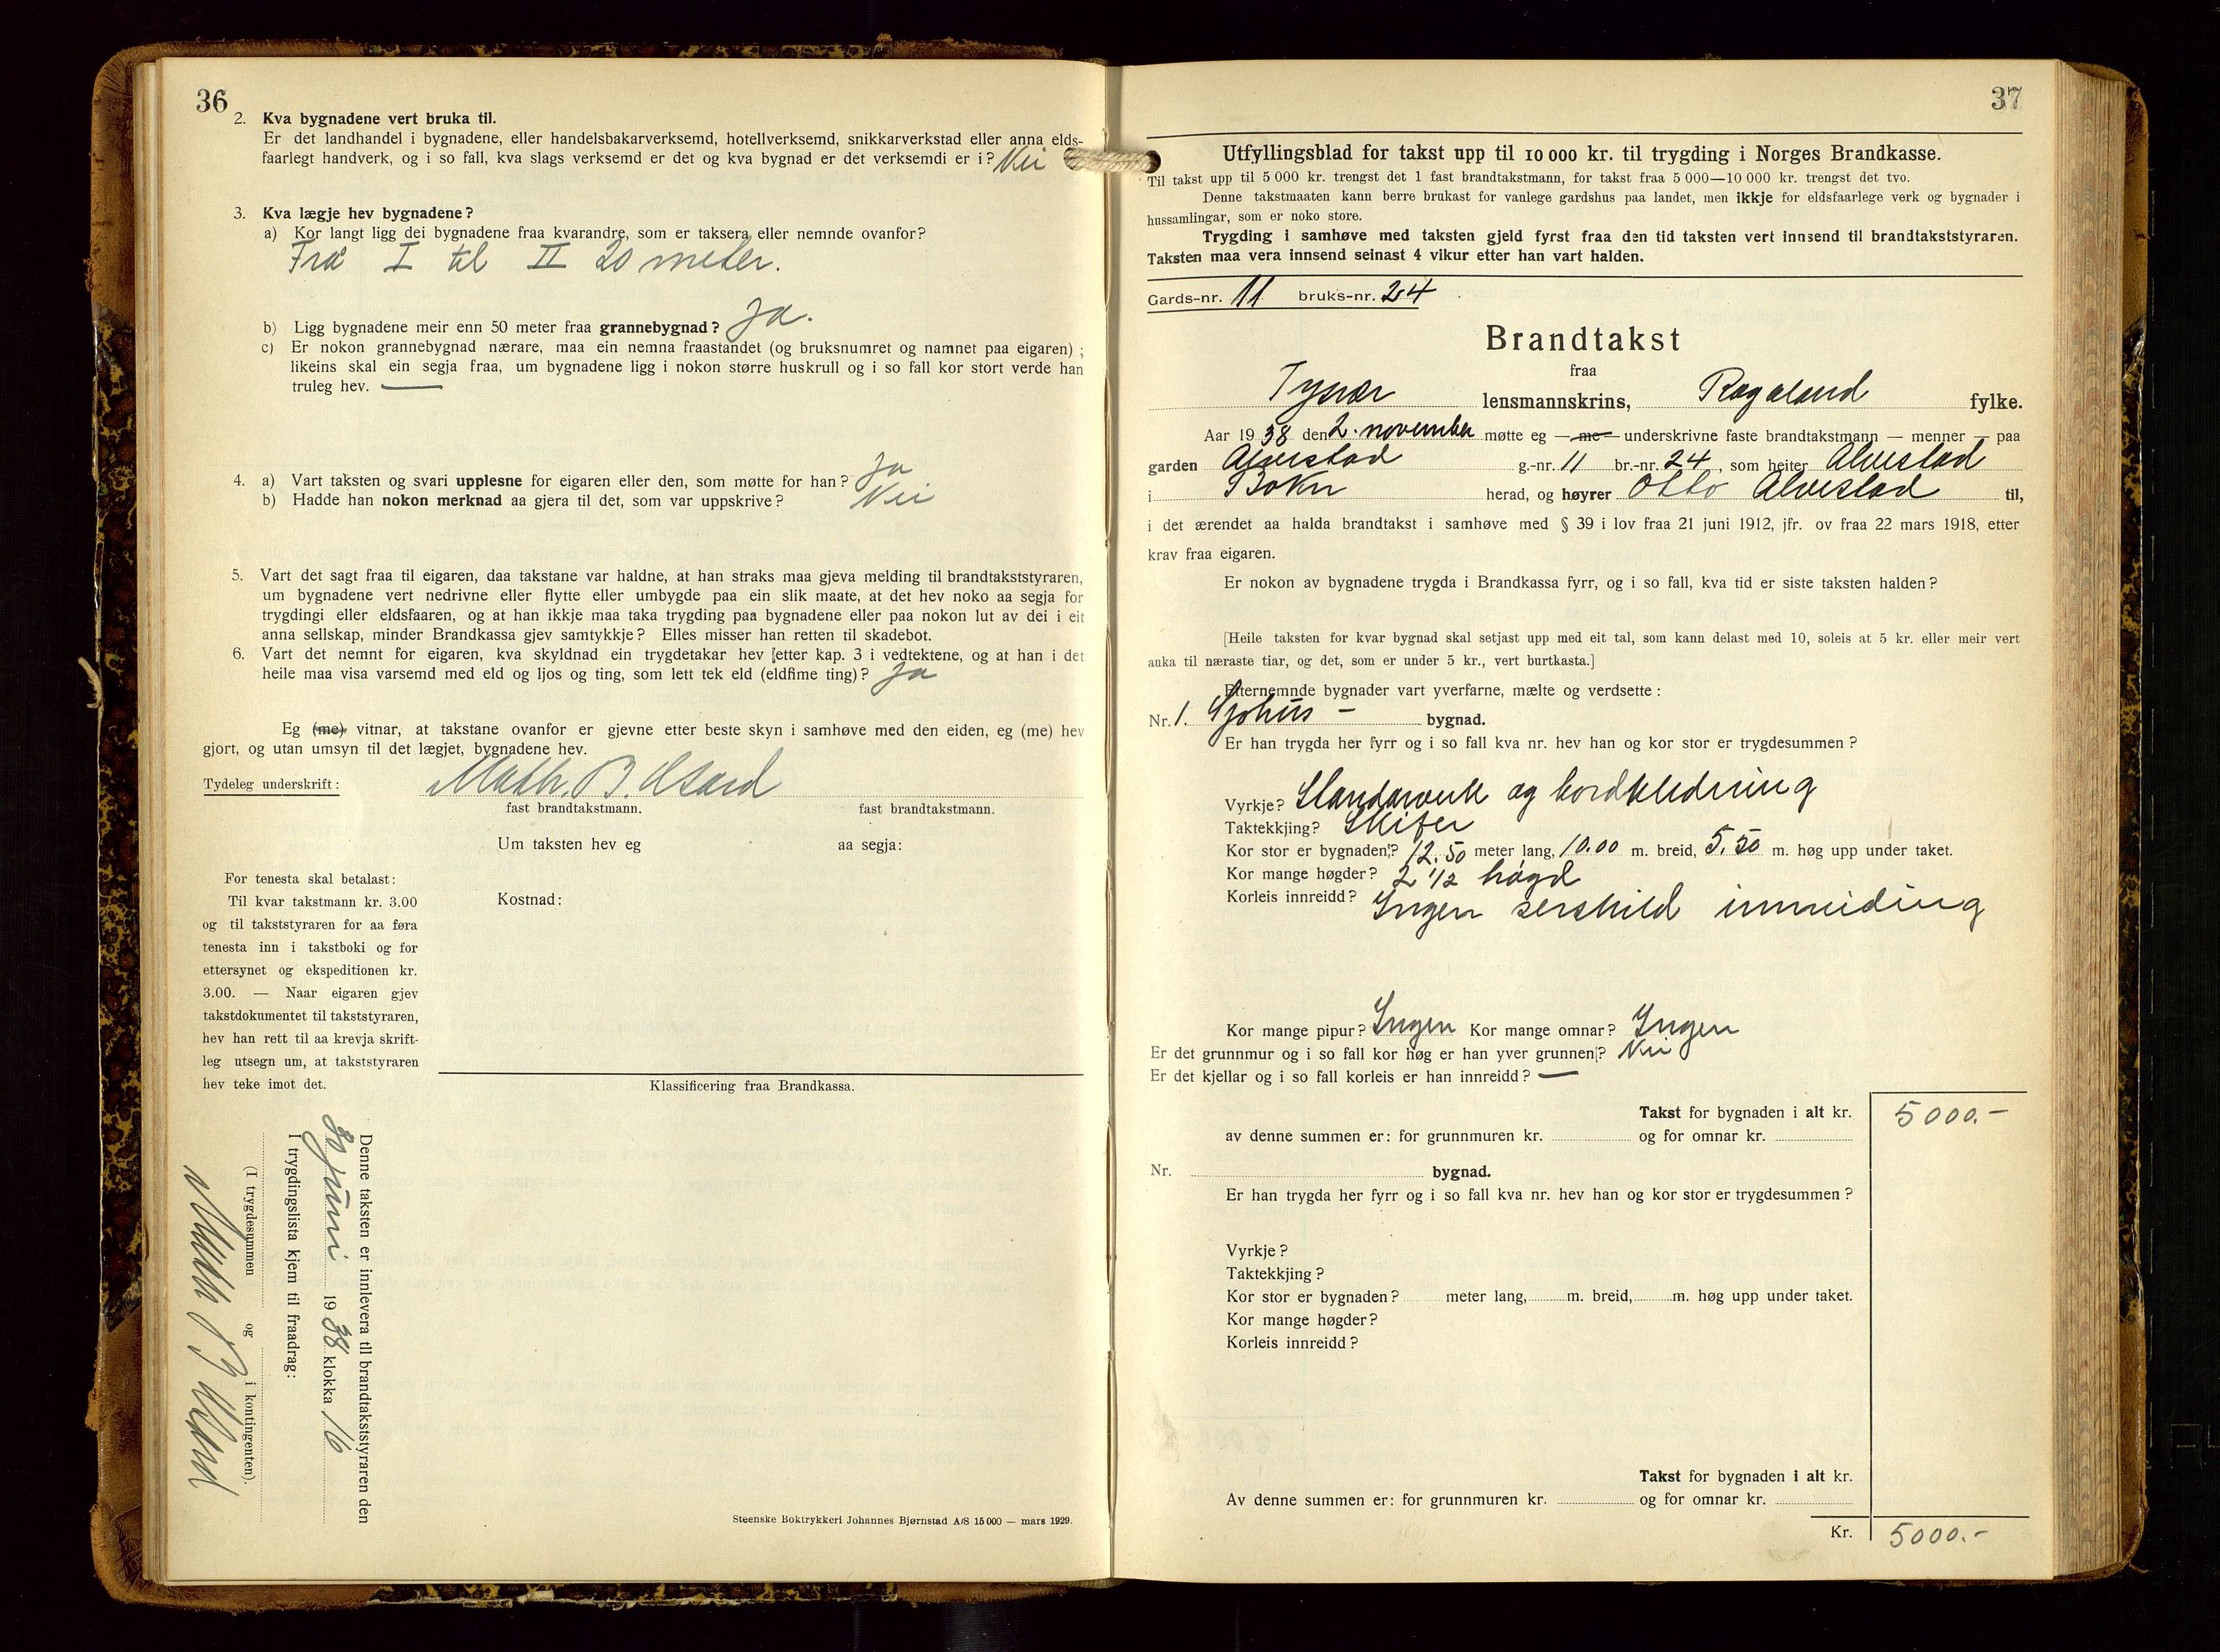 36
2. Kva bygnadene vert bruka til.
Er det landhandel i bygnadene, eller handelsbakarverksemd, hotellverksemd, snikkarverkstad eller anna elds-
faarlegt handverk, og i so fall, kva slags verksemd er det og kva bygnad er det verksemdi er i? Nei
3. Kva lægje hev bygnadene?
a) Kor langt ligg dei bygnadene fraa kvarandre, som er taksera eller nemnde ovanfor?
Frå I til II 20 meter.
b) Ligg bygnadene meir enn 50 meter fraa grannebygnad? Ja.
c) Er nokon grannebygnad nærare, maa ein nemna fraastandet (og bruksnumret og namnet paa eigaren) ;
likeins skal ein segja fraa, um bygnadene ligg i nokon større huskrull og i so fall kor stort verde han
truleg hev. —
4. a) Vart taksten og svari upplesne for eigaren eller den, som møtte for han? Ja
b) Hadde han nokon merknad aa gjera til det, som var uppskrive? Nei
5. Vart det sagt fraa til eigaren, daa takstane var haldne, at han straks maa gjeva melding til brandtakststyraren,
um bygnadene vert nedrivne eller flytte eller umbygde paa ein slik maate, at det hev noko aa segja for
trygdingi eller eldsfaaren, og at han ikkje maa taka trygding paa bygnadene eller paa nokon lut av dei i eit
anna sellskap, minder Brandkassa gjev samtykkje? Elles misser han retten til skadebot.
6. Vart det nemnt for eigaren, kva skyldnad ein trygdetakar hev etter kap. 3 i vedtektene, og at han i det
heile maa visa varsemd med eld og ljos og ting, som lett tek eld (eldfime ting)? Ja
Eg (me) vitnar, at takstane ovanfor er gjevne etter beste skyn i samhøve med den eiden, eg (me) hev
gjort, og utan umsyn til det lægjet, bygnadene hev.
Tydeleg underskrift: Math. B.
fast brandtakstmann. fast brandtakstmann.
Um taksten hev eg aa segja:
Kostnad:
For tenesta skal betalast:
Til kvar takstmann kr. 3.00
og til takststyraren for aa føra
tenesta inn i takstboki og for
ettersynet og ekspeditionen kr.
3.00. — Naar eigaren gjev
takstdokumentet til takststyraren,
hev han rett til aa krevja skrift-
leg utsegn um, at takststyraren
hev teke imot det.
Klassificering fraa Brandkassa.
Denne taksten er innlevera til brandtakststyraren den
juni 1938 klokka 16
I trygdingslista kjem til fraadrag:
(I trygdesummen og i kontingenten).
Math B
Steenske Boktrykkeri Johannes Bjørnstad A/S 15 000 — mars 1929.
37
Utfyllingsblad for takst upp til 10 000 kr. til trygding i Norges Brandkasse.
Til takst upp til 5 000 kr. trengst det 1 fast brandtakstmann, for takst fraa 5 000—10 000 kr. trengst det tvo.
Denne takstmaaten kann berre brukast for vanlege gardshus paa landet, men ikkje for eldsfaarlege verk og bygnader i
hussamlingar, som er noko store.
Trygding i samhøve med taksten gjeld fyrst fraa den tid taksten vert innsend til brandtakststyraren.
Taksten maa vera innsend seinast 4 vikur etter han vart halden.
Gards-nr. 11 bruks-nr. 24
Brandtakst
fraa
Tysvær lensmannskrins, Rogaland fylke.
Aar 1938 den 2. november møtte eg — me — underskrivne faste brandtakstmann — menner — paa
garden Alvestad g.-nr. 11 br.-nr. 24, som heiter Alvestad
i Bokn herad, og høyrer Otto Alvestad til,
i det ærendet aa halda brandtakst i samhøve med § 39 i lov fraa 21 juni 1912, jfr. ov fraa 22 mars 1918, etter
krav fraa eigaren.
Er nokon av bygnadene trygda i Brandkassa fyrr, og i so fall, kva tid er siste taksten halden?
[Heile taksten for kvar bygnad skal setjast upp med eit tal, som kann delast med 10, soleis at 5 kr. eller meir vert
auka til næraste tiar, og det, som er under 5 kr., vert burtkasta.]
Etternemnde bygnader vart yverfarne, mælte og verdsette:
Nr. 1. Sjøhus — bygnad.
Er han trygda her fyrr og i so fall kva nr. hev han og kor stor er trygdesummen?
Vyrkje? Standarverk og bordkledning
Taktekkjing? Skifer
Kor stor er bygnaden? 12.50 meter lang, 10.00 m. breid, 5.50 m. høg upp under taket.
Kor mange høgder? 2 1/2 høgd
Korleis innreidd? Ingen serskild innreiding
Kor mange pipur? Ingen Kor mange omnar? Ingen
Er det grunnmur og i so fall kor høg er han yver grunnen? Nei
Er det kjellar og i so fall korleis er han innreidd? —
Takst for bygnaden i alt kr. 5000.-
av denne summen er: for grunnmuren kr. og for omnar kr.
Nr. bygnad.
Er han trygda her fyrr og i so fall kva nr. hev han og kor stor er trygdesummen?
Vyrkje?
Taktekkjing?
Kor stor er bygnaden? meter lang, m. breid, m. høg upp under taket.
Kor mange høgder?
Korleis innreidd?
Takst for bygnaden i alt kr.
Av denne summen er: for grunnmuren kr. og for omnar kr.
Kr. 5000.-